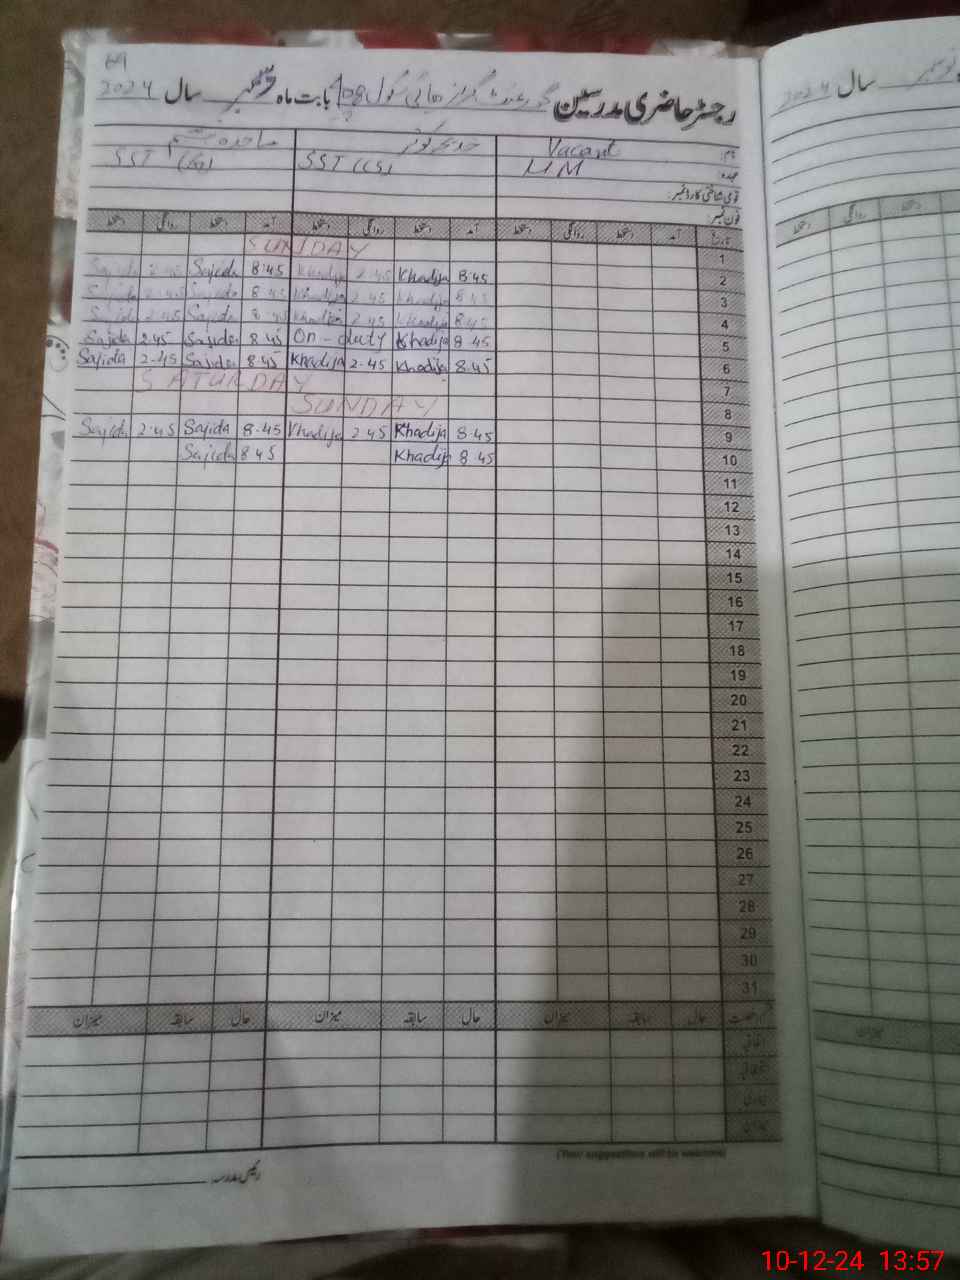 69
رجسٹر حاضری مدرسین گورنمنٹ گرلز ہائی سکول 108 بابت ماہ دسمبر سال 2024
نام: Vacant خدیجہ کوثر ساجدہ
عہدہ: HM SST (CS) SST
قومی شناختی کارڈ نمبر:
فون نمبر:
تاریخ آمد دستخط روانگی دستخط آمد دستخط روانگی دستخط آمد دستخط روانگی دستخط
1 SUNDAY
2 8:45 Khadija 2:45 Khadija 8:45 Sajida 2:45 Sajida
3 8:45 Khadija 2:45 Khadija 8:45 Sajida 2:45 Sajida
4 8:45 Khadija 2:45 Khadija 8:45 Sajida 2:45 Sajida
5 8:45 Khadija On-duty 8:45 Sajida 2:45 Sajida
6 8:45 Khadija 2:45 Khadija 8:45 Sajida 2:45 Sajida
7 SATURDAY
8 SUNDAY
9 8:45 Khadija 2:45 Khadija 8:45 Sajida 2:45 Sajida
10 8:45 Khadija 8:45 Sajida
11
12
13
14
15
16
17
18
19
20
21
22
23
24
25
26
27
28
29
30
31
حال سابقہ میزان حال سابقہ میزان حال سابقہ میزان
اتفاقیہ
بیماری
(Your suggestions will be welcome)
رئیس مدرسہ
سال 2024
نومبر
دستخط روانگی دستخط
میزان
10-12-24 13:57